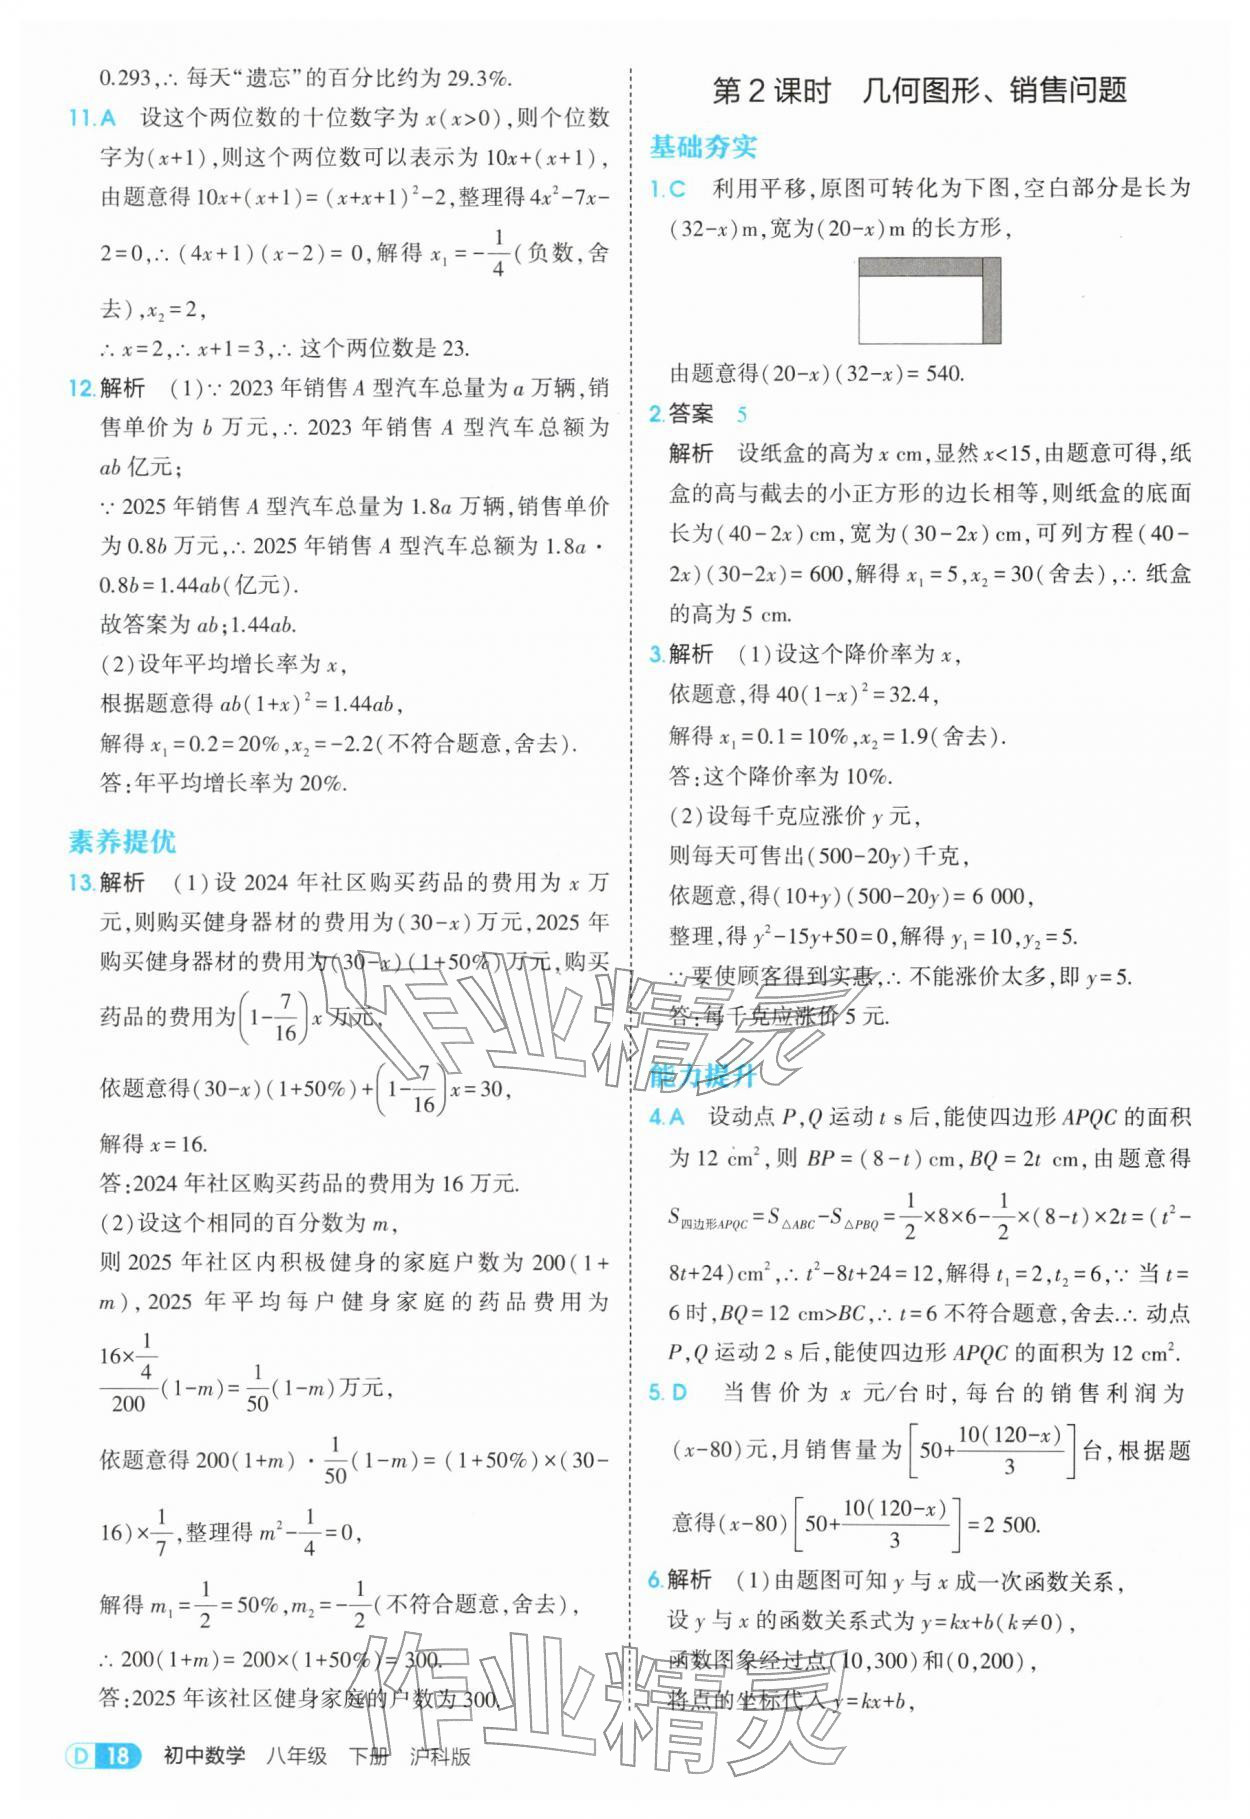 0.293,∴ 每天“遗忘”的百分比约为 29.3%.
11.A 设这个两位数的十位数字为 x(x>0),则个位数
字为(x+1),则这个两位数可以表示为 10x+(x+1),
由题意得 10x+(x+1)=(x+x+1)²-2,整理得 4x²-7x-
2=0,∴(4x+1)(x-2)=0,解得 x₁=-1/4(负数,舍
去),x₂=2,
∴ x=2,∴ x+1=3,∴ 这个两位数是 23.
12.解析 (1)∵ 2023 年销售 A 型汽车总量为 a 万辆,销
售单价为 b 万元,∴ 2023 年销售 A 型汽车总额为
ab 亿元;
∵ 2025 年销售 A 型汽车总量为 1.8a 万辆,销售单价
为 0.8b 万元,∴ 2025 年销售 A 型汽车总额为 1.8a·
0.8b=1.44ab(亿元).
故答案为 ab;1.44ab.
(2)设年平均增长率为 x,
根据题意得 ab(1+x)²=1.44ab,
解得 x₁=0.2=20%,x₂=-2.2(不符合题意,舍去).
答:年平均增长率为 20%.
素养提优
13.解析 (1)设 2024 年社区购买药品的费用为 x 万
元,则购买健身器材的费用为(30-x)万元,2025 年
购买健身器材的费用为(30-x)(1+50%)万元,购买
药品的费用为(1-7/16)x 万元,
依题意得(30-x)(1+50%)+(1-7/16)x=30,
解得 x=16.
答:2024 年社区购买药品的费用为 16 万元.
(2)设这个相同的百分数为 m,
则 2025 年社区内积极健身的家庭户数为 200(1+
m),2025 年平均每户健身家庭的药品费用为
(16×1/4)/200(1-m)=1/50(1-m)万元,
依题意得 200(1+m)·1/50(1-m)=(1+50%)×(30-
16)×1/7,整理得 m²-1/4=0,
解得 m₁=1/2=50%,m₂=-1/2(不符合题意,舍去),
∴ 200(1+m)=200×(1+50%)=300.
答:2025 年该社区健身家庭的户数为 300.
第 2 课时 几何图形、销售问题
基础夯实
1.C 利用平移,原图可转化为下图,空白部分是长为
(32-x)m,宽为(20-x)m 的长方形,
由题意得(20-x)(32-x)=540.
2.答案 5
解析 设纸盒的高为 x cm,显然 x<15,由题意可得,纸
盒的高与截去的小正方形的边长相等,则纸盒的底面
长为(40-2x)cm,宽为(30-2x)cm,可列方程(40-
2x)(30-2x)=600,解得 x₁=5,x₂=30(舍去),∴ 纸盒
的高为 5 cm.
3.解析 (1)设这个降价率为 x,
依题意,得 40(1-x)²=32.4,
解得 x₁=0.1=10%,x₂=1.9(舍去).
答:这个降价率为 10%.
(2)设每千克应涨价 y 元,
则每天可售出(500-20y)千克,
依题意,得(10+y)(500-20y)=6 000,
整理,得 y²-15y+50=0,解得 y₁=10,y₂=5.
∵ 要使顾客得到实惠,∴ 不能涨价太多,即 y=5.
答:每千克应涨价 5 元.
能力提升
4.A 设动点 P,Q 运动 t s 后,能使四边形 APQC 的面积
为 12 cm²,则 BP=(8-t)cm,BQ=2t cm,由题意得
S四边形APQC=S△ABC-S△PBQ=1/2×8×6-1/2×(8-t)×2t=(t²-
8t+24)cm²,∴ t²-8t+24=12,解得 t₁=2,t₂=6,∵ 当 t=
6 时,BQ=12 cm>BC,∴ t=6 不符合题意,舍去.∴ 动点
P,Q 运动 2 s 后,能使四边形 APQC 的面积为 12 cm².
5.D 当售价为 x 元/台时,每台的销售利润为
(x-80)元,月销售量为[50+10(120-x)/3]台,根据题
意得(x-80)[50+10(120-x)/3]=2 500.
6.解析 (1)由题图可知 y 与 x 成一次函数关系,
设 y 与 x 的函数关系式为 y=kx+b(k≠0),
函数图象经过点(10,300)和(0,200),
将点的坐标代入 y=kx+b,
D 18 初中数学 八年级 下册 沪科版
作业精灵
作业精灵